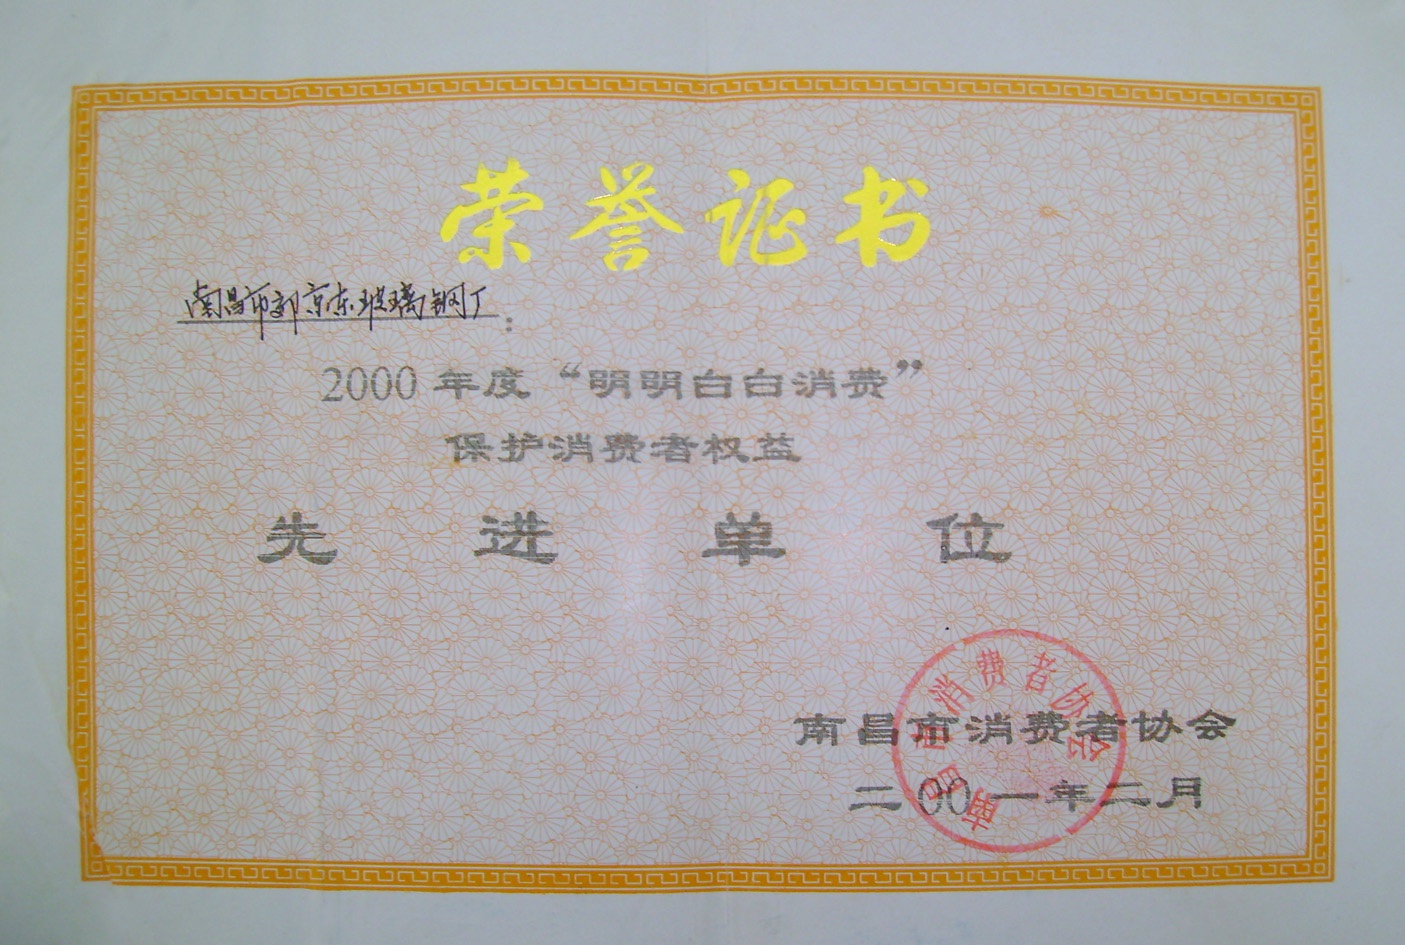 荣誉证书
南昌市郊京东玻璃钢厂：
2000年度“明明白白消费”
保护消费者权益
先进单位
南昌市消费者协会
二00一年二月
南昌市消费者协会